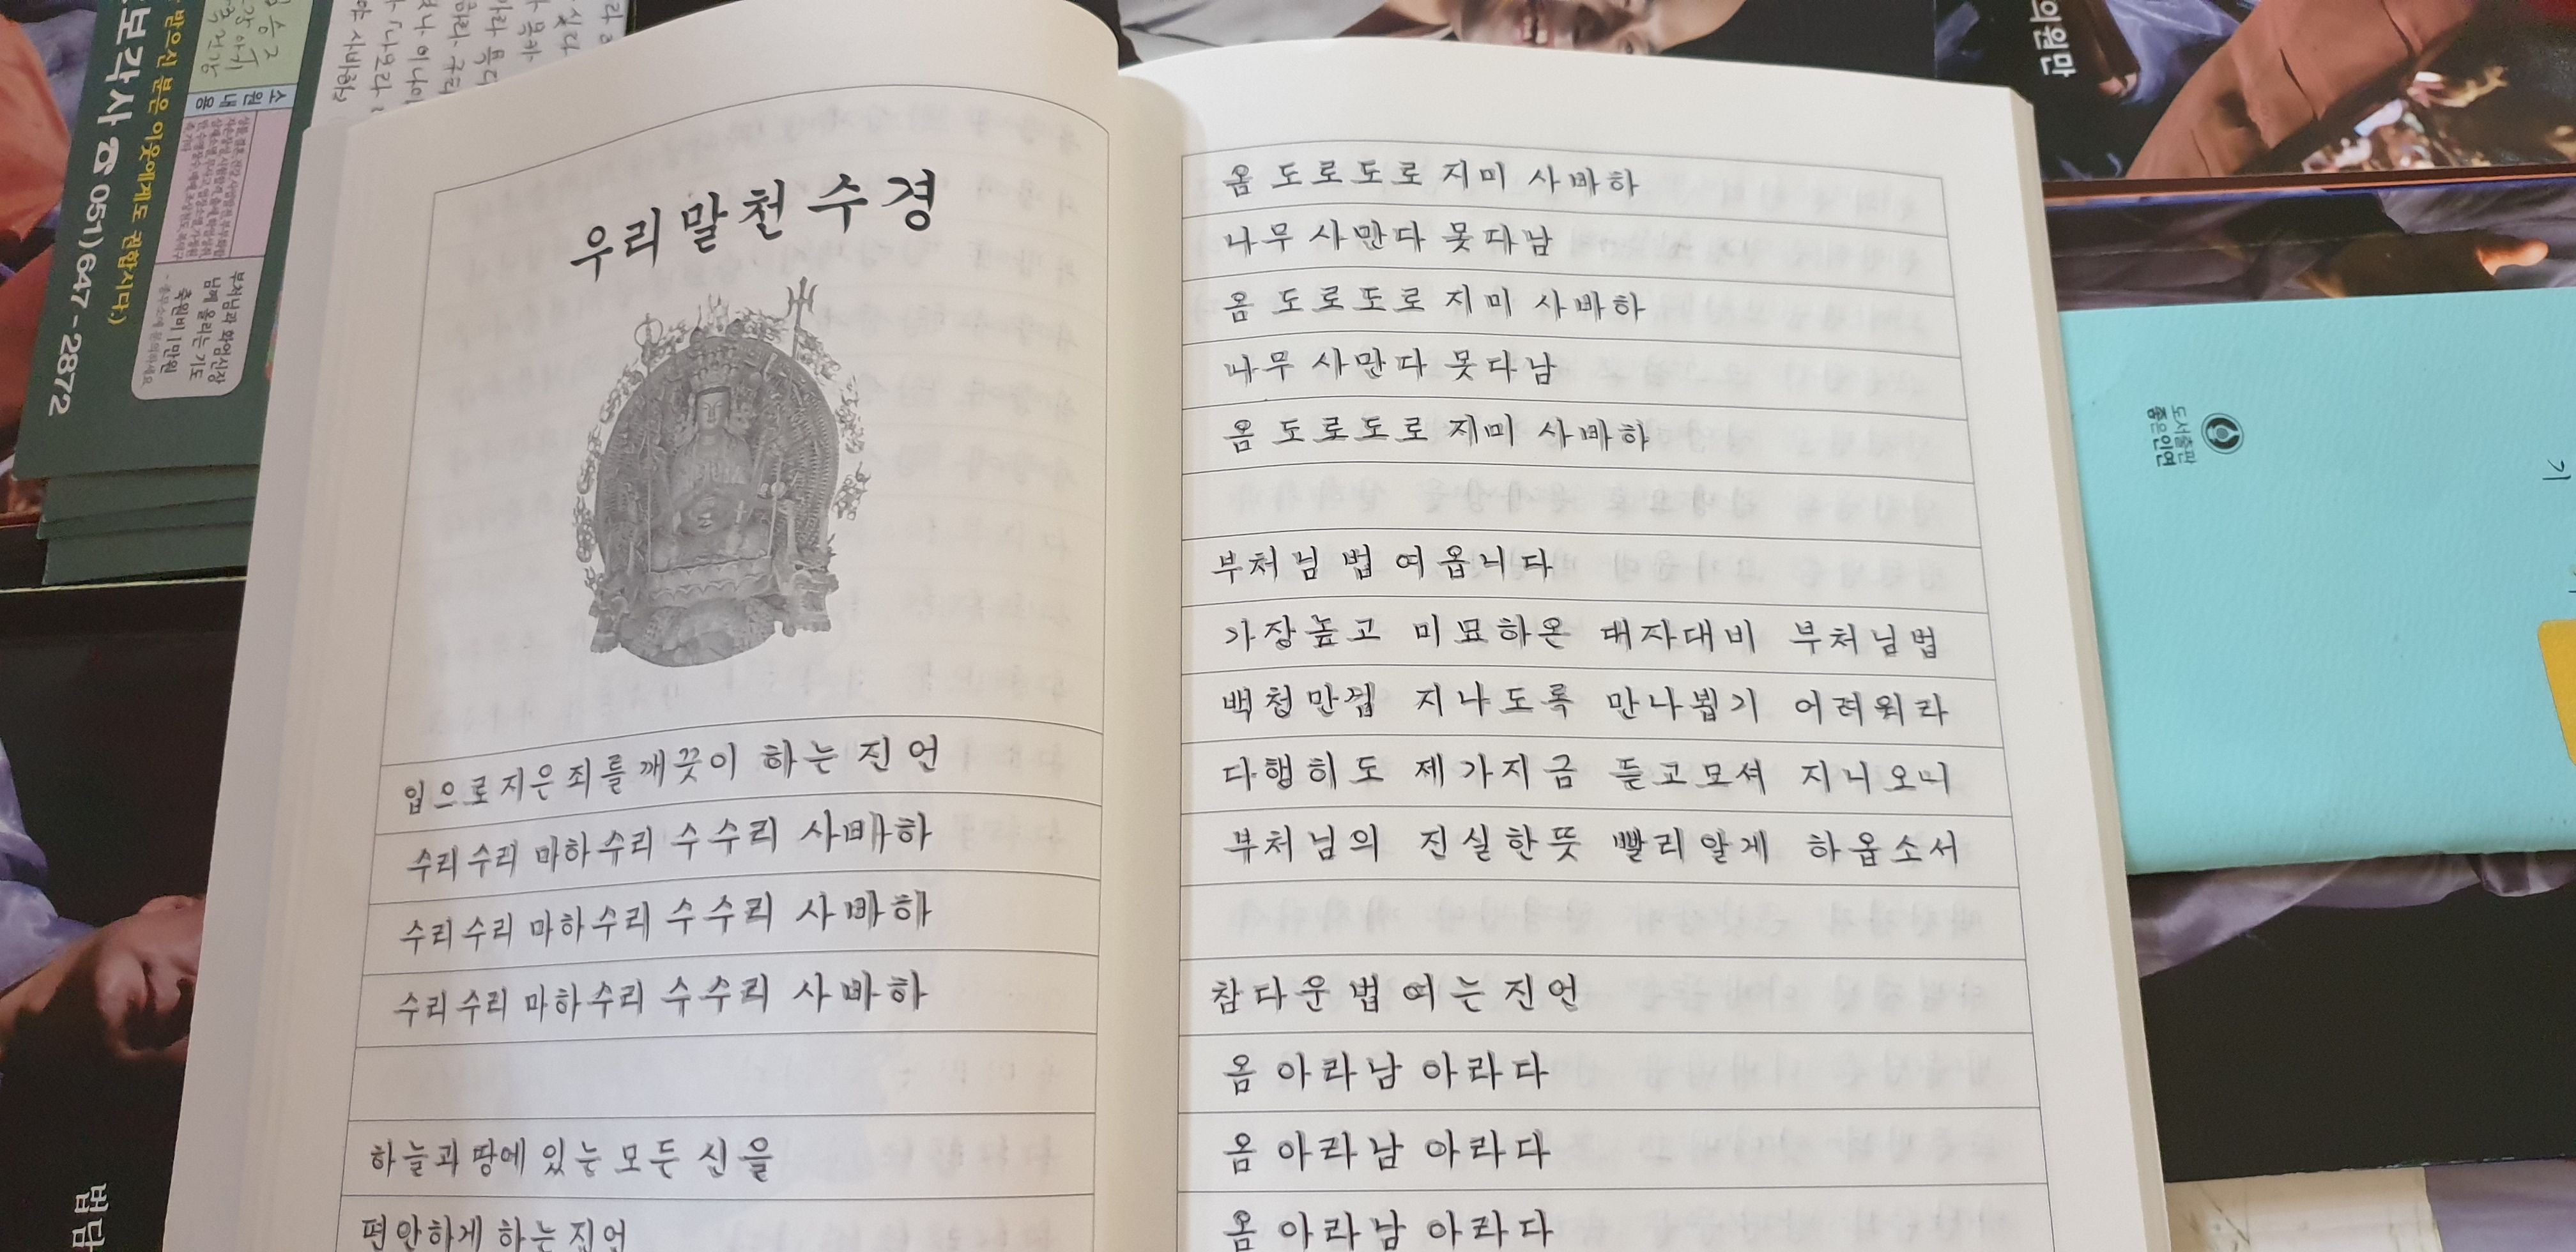 우리말천수경
입으로지은죄를깨끗이 하는 진언
수리수리 마하수리 수수리 사바하
수리수리 마하수리 수수리 사바하
수리수리 마하수리 수수리 사바하
하늘과 땅에 있는 모든 신을
편안하게 하는 진언
옴 도로도로 지미 사바하
나무 사만다 못다남
옴 도로도로 지미 사바하
나무 사만다 못다남
옴 도로도로 지미 사바하
부처님법 여옵니다
가장높고 미묘하온 대자대비 부처님법
백천만겁 지나도록 만나뵙기 어려워라
다행히도 제가지금 듣고모셔 지니오니
부처님의 진실한뜻 빨리알게 하옵소서
참다운 법 여는 진언
옴 아라남 아라다
옴 아라남 아라다
옴 아라남 아라다
보각사 ☎ 051) 647-2872
받으신 분은 이웃에게도 권합시다.)
소원내용
부처님과 화엄신장
님께 올리는 기도
축원비 1만원
의원만
도서출판
좋은인연
법담
기